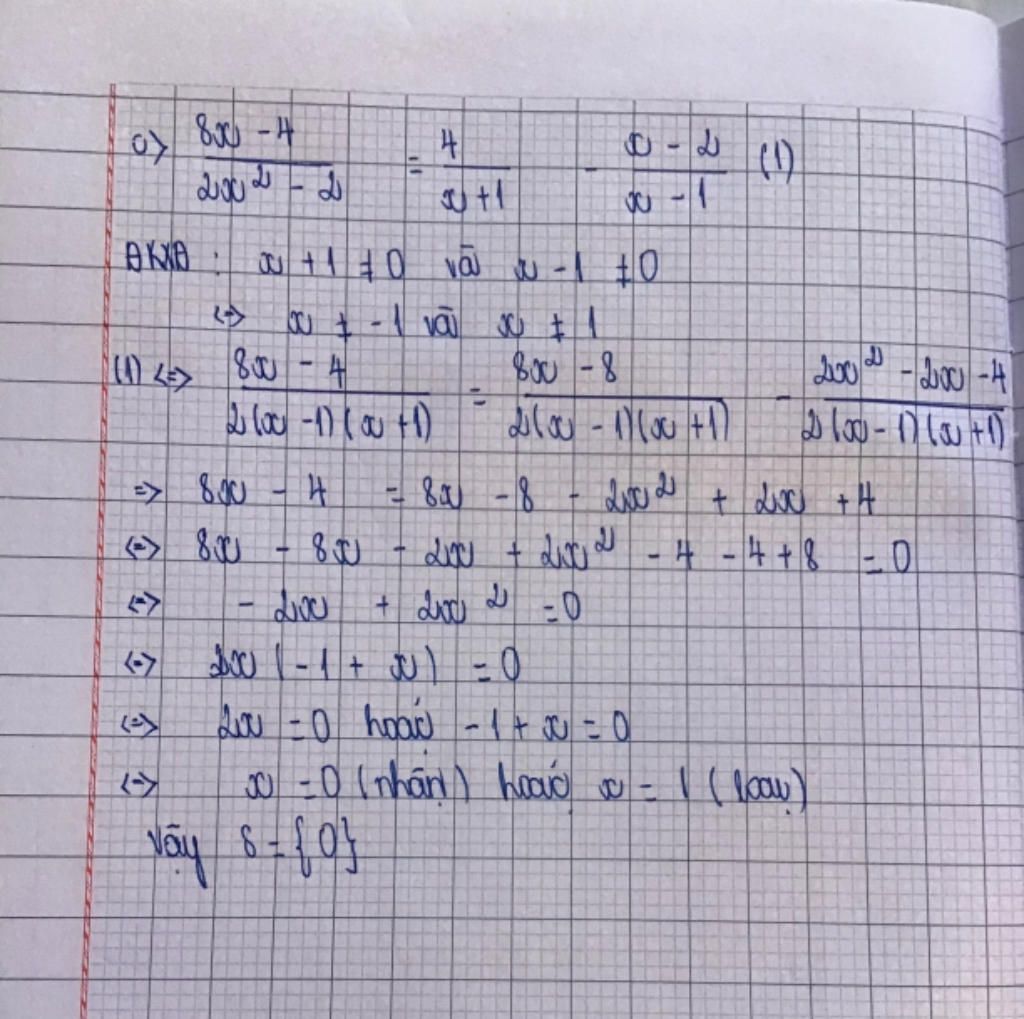 c) (8x - 4)/(2x² - 2) = 4/(x + 1) - (x - 2)/(x - 1) (1)
ĐKXĐ : x + 1 ≠ 0 và x - 1 ≠ 0
<=> x ≠ -1 và x ≠ 1
(1) <=> (8x - 4)/(2(x - 1)(x + 1)) = (8x - 8)/(2(x - 1)(x + 1)) - (2x² - 2x - 4)/(2(x - 1)(x + 1))
=> 8x - 4 = 8x - 8 - 2x² + 2x + 4
<=> 8x - 8x - 2x + 2x² - 4 - 4 + 8 = 0
<=> - 2x + 2x² = 0
<=> 2x (-1 + x) = 0
<=> 2x = 0 hoặc -1 + x = 0
<=> x = 0 (nhận) hoặc x = 1 (loại)
Vậy S = {0}